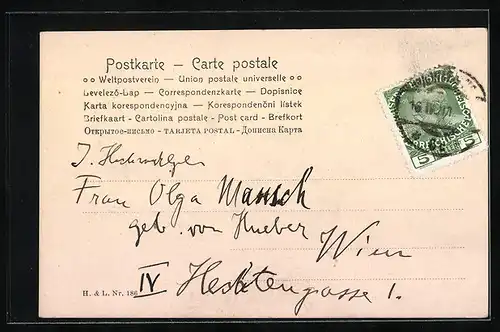 Postkarte – Carte postale
Weltpostverein – Union postale universelle
Levelező-Lap – Correspondenzkarte – Dopisnice
Karta korespondencyjna – Korespondenční lístek
Briefkaart – Cartolina postale - Post card - Brefkort
Открытое-письмо - TARJETA POSTAL - Дописна Карта
Frau Olga Mansch
geb. von Hueber
Wien
IV Hechtengasse 1.
H. & L. Nr. 186
5 5